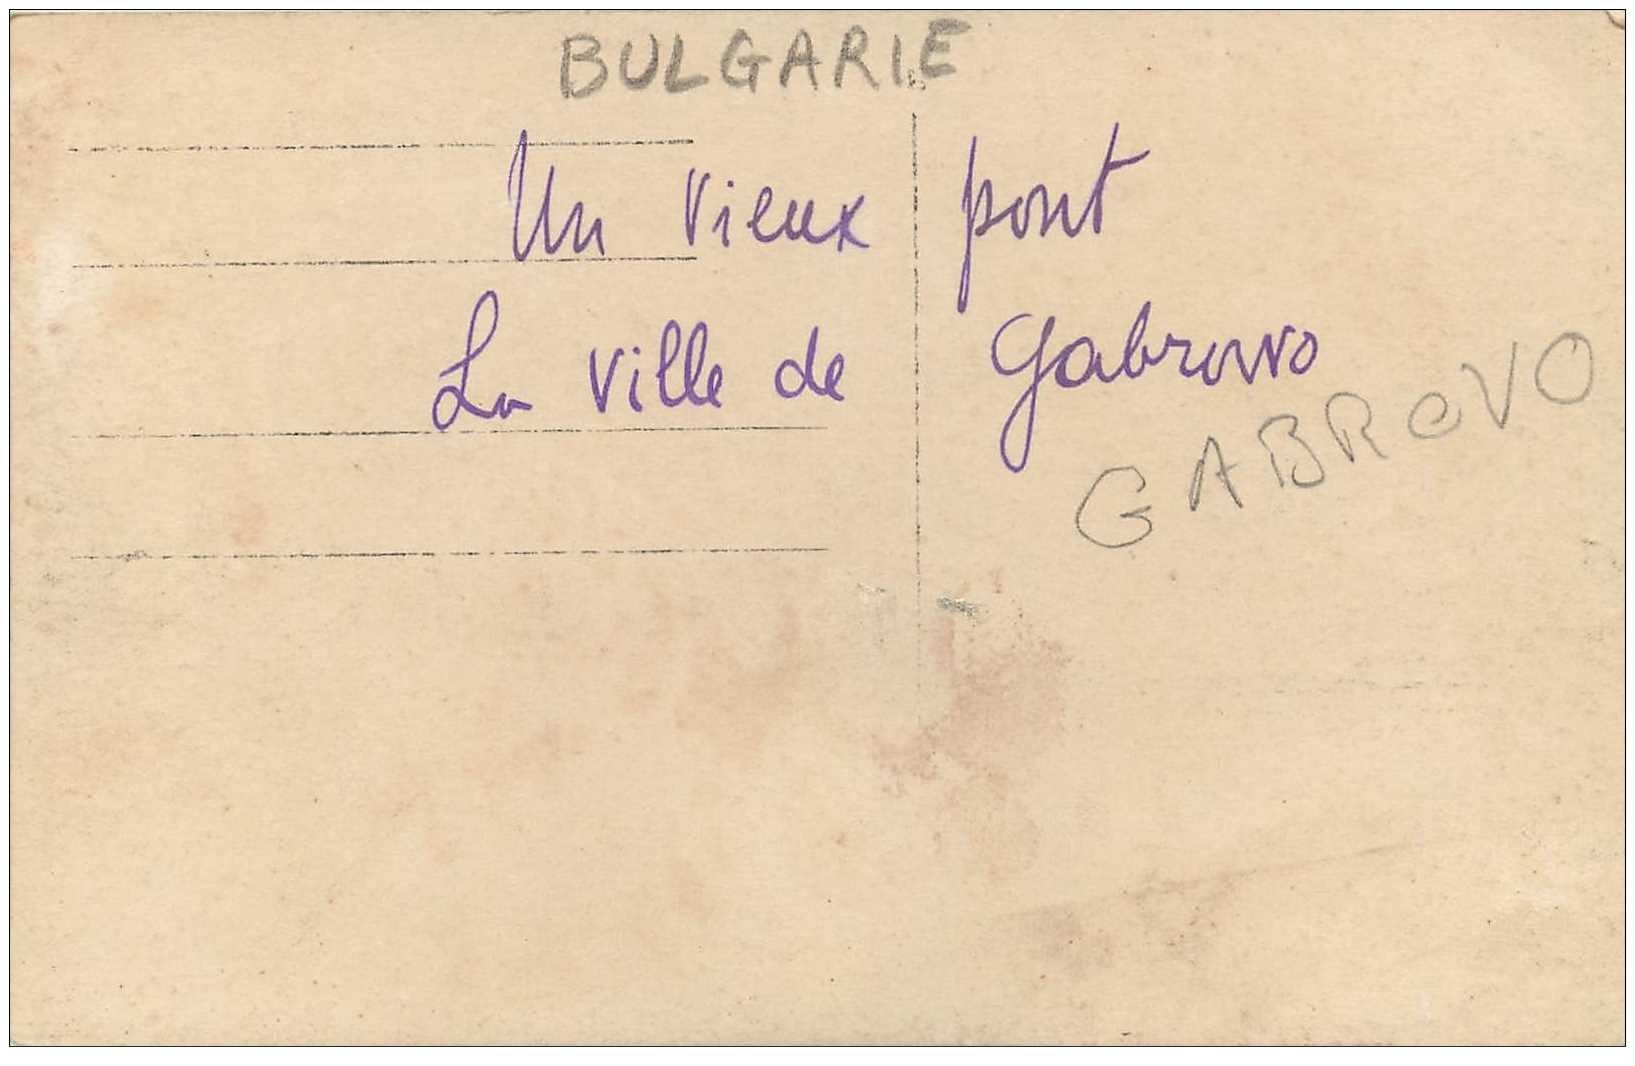 BULGARIE
Un vieux pont
La ville de Gabrowo
GABROVO